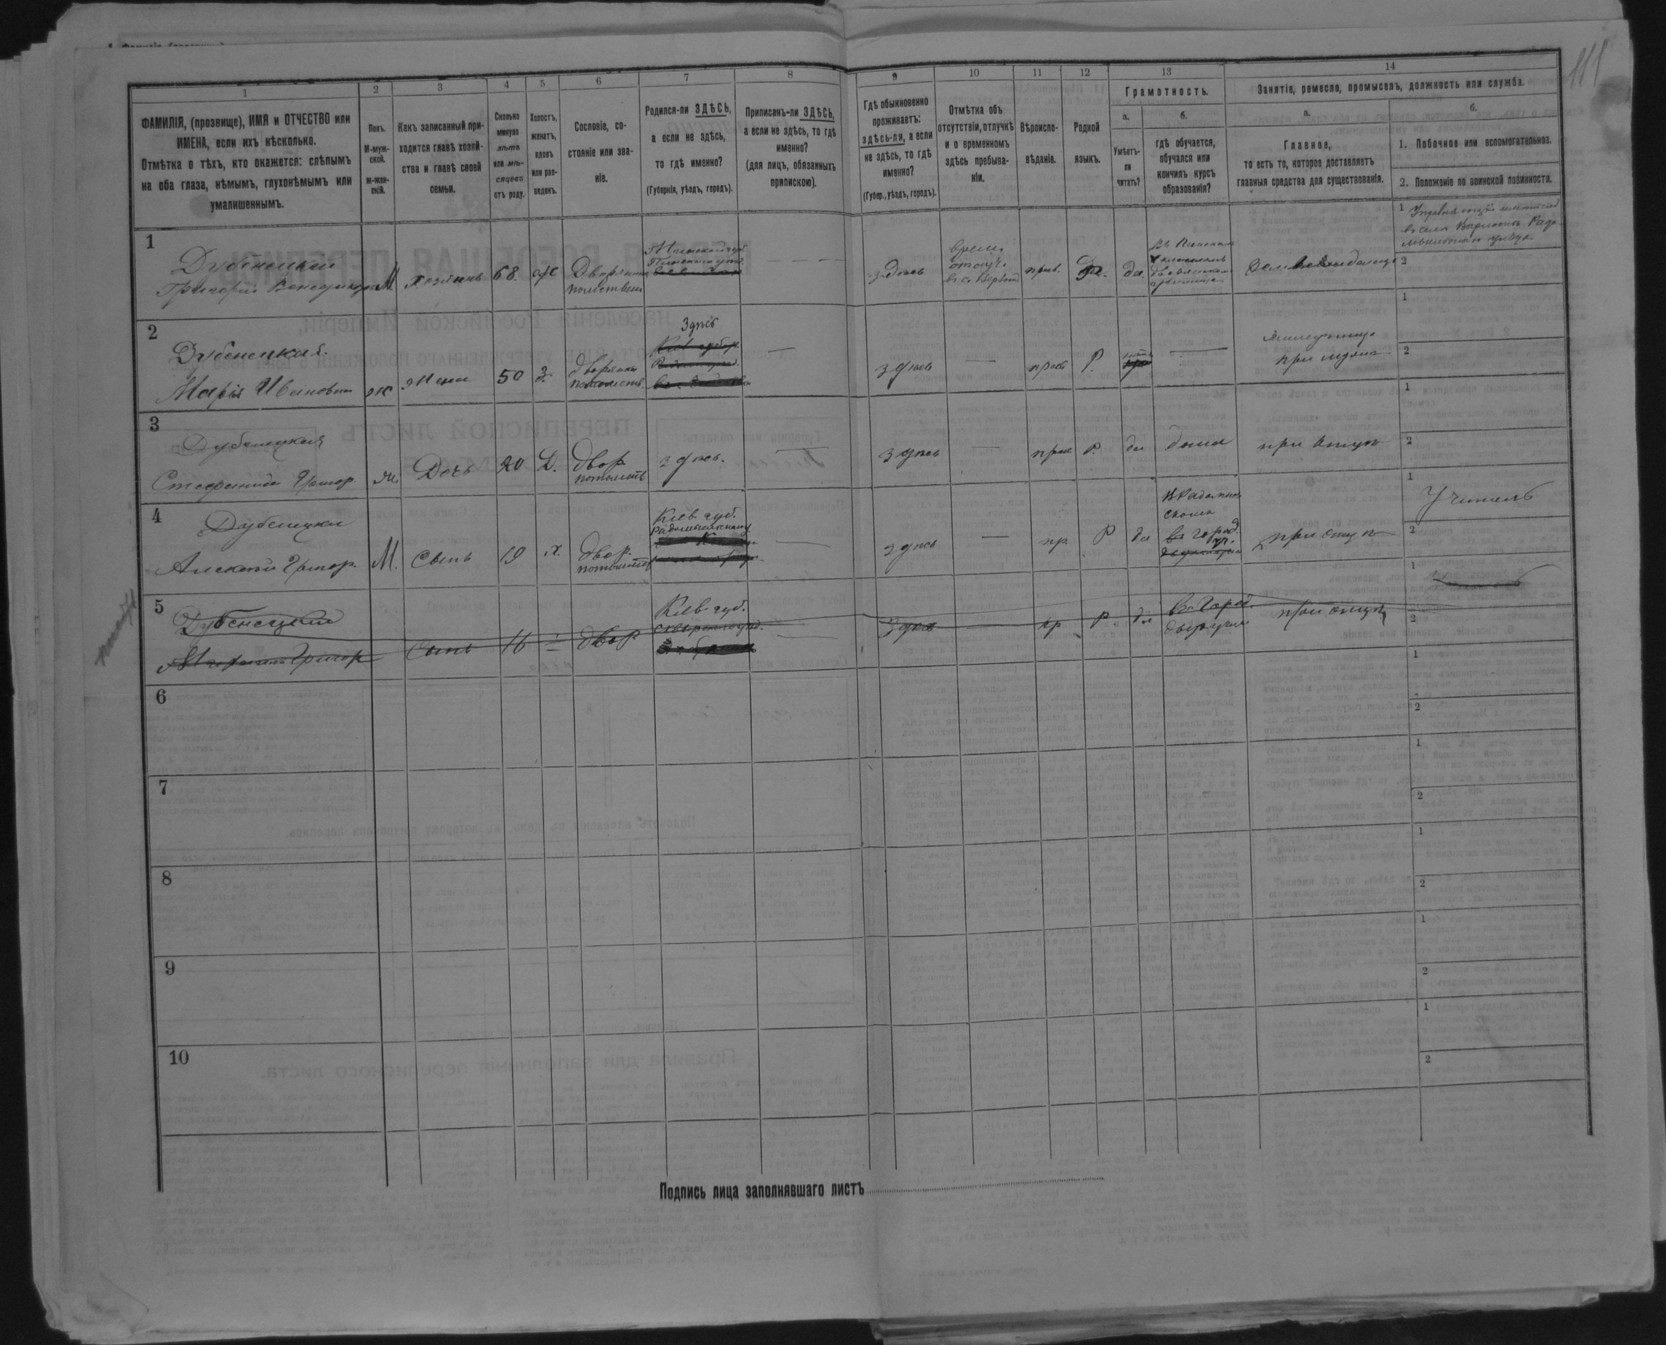 111
1
2
3
4
5
6
7
8
9
10
11
12
13
14
ФАМИЛІЯ, (прозвище), ИМЯ и ОТЧЕСТВО или
ИМЕНА, если ихъ нѣсколько.
Отмѣтка о тѣхъ, кто окажется: слѣпымъ
на оба глаза, нѣмымъ, глухонѣмымъ или
умалишеннымъ.
Полъ.
М-муж-
ской.
Ж-жен-
скій.
Какъ записанный при-
ходится главѣ хозяй-
ства и главѣ своей
семьи.
Сколько
минуло
лѣтъ
или мѣ-
сяцевъ
отъ роду.
Холостъ,
женатъ,
вдовъ
или раз-
веденъ.
Сословіе, со-
стояніе или зва-
ніе.
Родился-ли ЗДѢСЬ,
а если не здѣсь,
то гдѣ именно?
(Губернія, уѣздъ, городъ).
Приписанъ-ли ЗДѢСЬ,
а если не здѣсь, то гдѣ
именно?
(для лицъ, обязанныхъ
припискою).
Гдѣ обыкновенно
проживаетъ:
здѣсь-ли, а если
не здѣсь, то гдѣ
именно?
(Губер., уѣздъ, городъ).
Отмѣтка объ
отсутствіи, отлучкѣ
и о временномъ
здѣсь пребыва-
ніи.
Вѣроиспо-
вѣданіе.
Родной
языкъ.
Грамотность.
а.
Умѣетъ-
ли
читать?
б.
гдѣ обучается,
обучался или
кончилъ курсъ
образованія?
Занятіе, ремесло, промыселъ, должность или служба.
а.
Главное,
то есть то, которое доставляетъ
главныя средства для существованія.
б.
1. Побочное или вспомогательное.
2. Положеніе по воинской повинности.
1
Дубенецкий
Григорій
М
хозяинъ
68.
ж
Дворянинъ
потомствен
здѣсь
времен.
отлуч.
прав.
Р.
да
1
2
2
Дубенецкая
Марія Ивановна
ж
жена
50
з.
дворянка
потомств
Здѣсь
здѣсь
прав
Р.
при мужѣ
1
2
3
Дубенецкая
Стефанида Григор
ж
Дочь
20
Д.
двор
потомств
здѣсь.
здѣсь
прав
Р.
да
дома
при отцѣ
1
2
4
Дубенецкий
Алексѣй Григор
М.
Сынъ
19
х.
двор.
потомств
Кіев. губ.
здѣсь
пр
Р
да
при отцѣ
1 Учитель
2
5
Дубенецкий
Григор
Сынъ
16
двор
Кіев. губ.
здѣсь
пр
Р.
да
В. Город.
двухкл
при отцѣ
1
2
6
1
2
7
1
2
8
1
2
9
1
2
10
1
2
Подпись лица заполнявшаго листъ